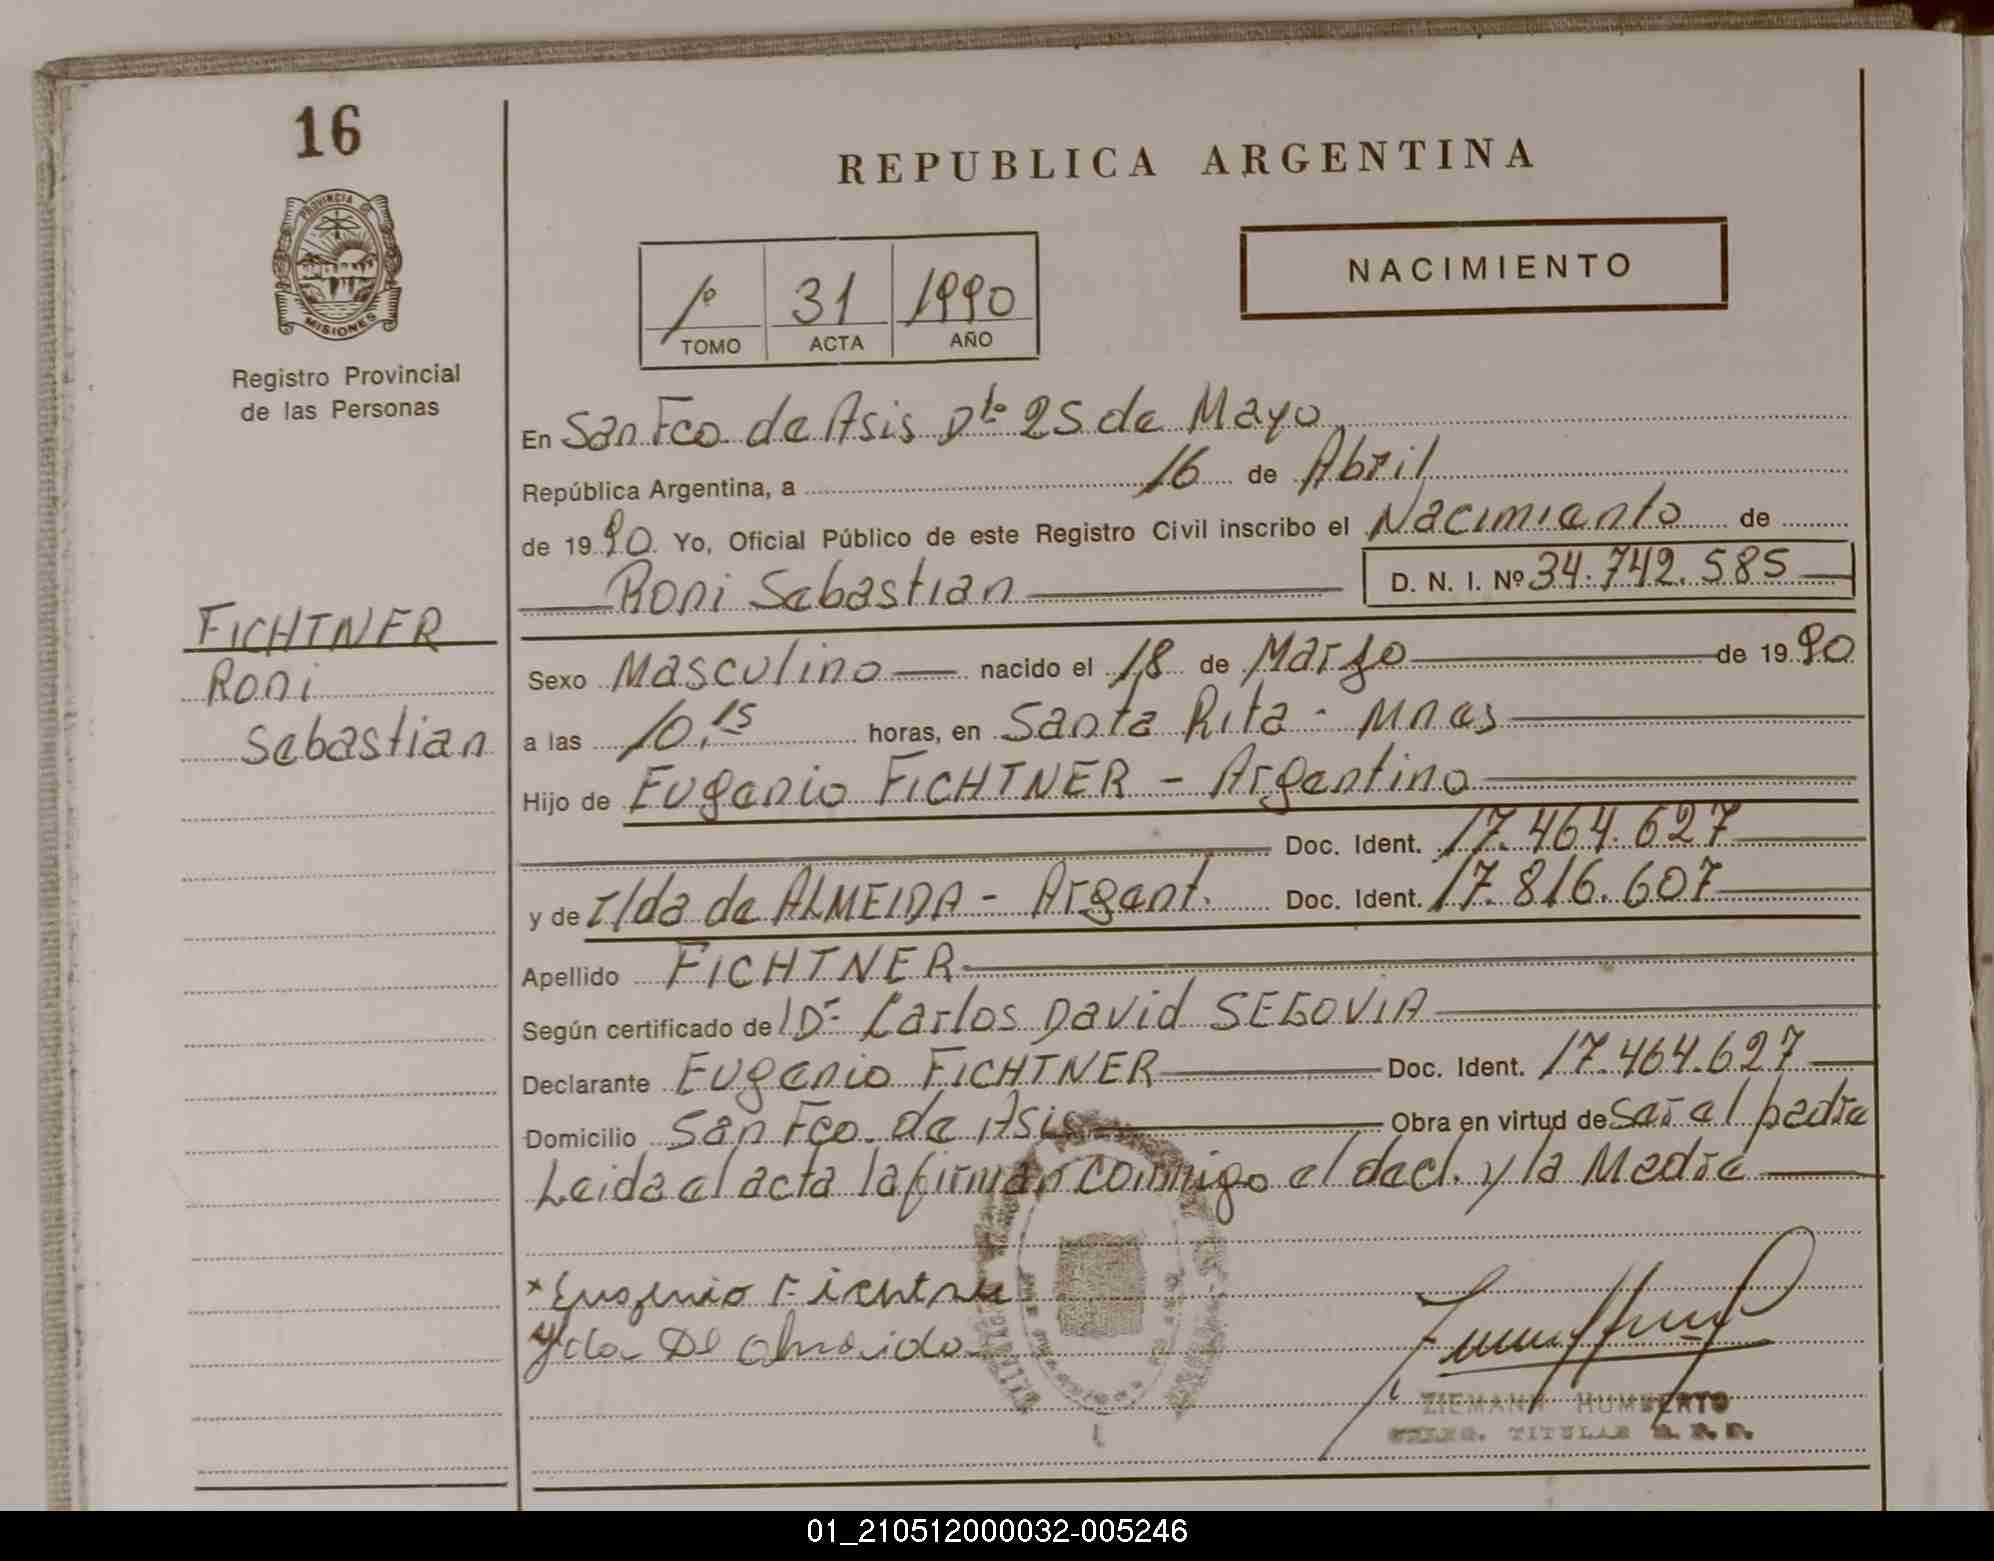 16
PROVINCIA DE
MISIONES
Registro Provincial
de las Personas
FICHTNER
Roni
Sebastian
REPUBLICA ARGENTINA
1º 31 1990
TOMO ACTA AÑO
NACIMIENTO
En San Fco de Asis Dto 25 de Mayo
República Argentina, a 16 de Abril
de 1990. Yo, Oficial Público de este Registro Civil inscribo el Nacimiento de
Roni Sebastian D. N. I. Nº 34.742.585
Sexo Masculino nacido el 18 de Marzo de 1990
a las 10,15 horas, en Santa Rita - Mnes
Hijo de Eugenio FICHTNER - Argentino
Doc. Ident. 17.464.627
y de Ilda de ALMEIDA - Argent. Doc. Ident. 17.816.607
Apellido FICHTNER
Según certificado del Dr. Carlos David SEGOVIA
Declarante Eugenio FICHTNER Doc. Ident. 17.464.627
Domicilio San Fco. de Asis Obra en virtud de Ser el padre
Leida el acta la firman conmigo el decl. y la Madre
Eugenio Fichtner
Ylda De Almeida
ZIEMANN HUMBERTO
DELEG. TITULAR R. P. P.
01_210512000032-005246